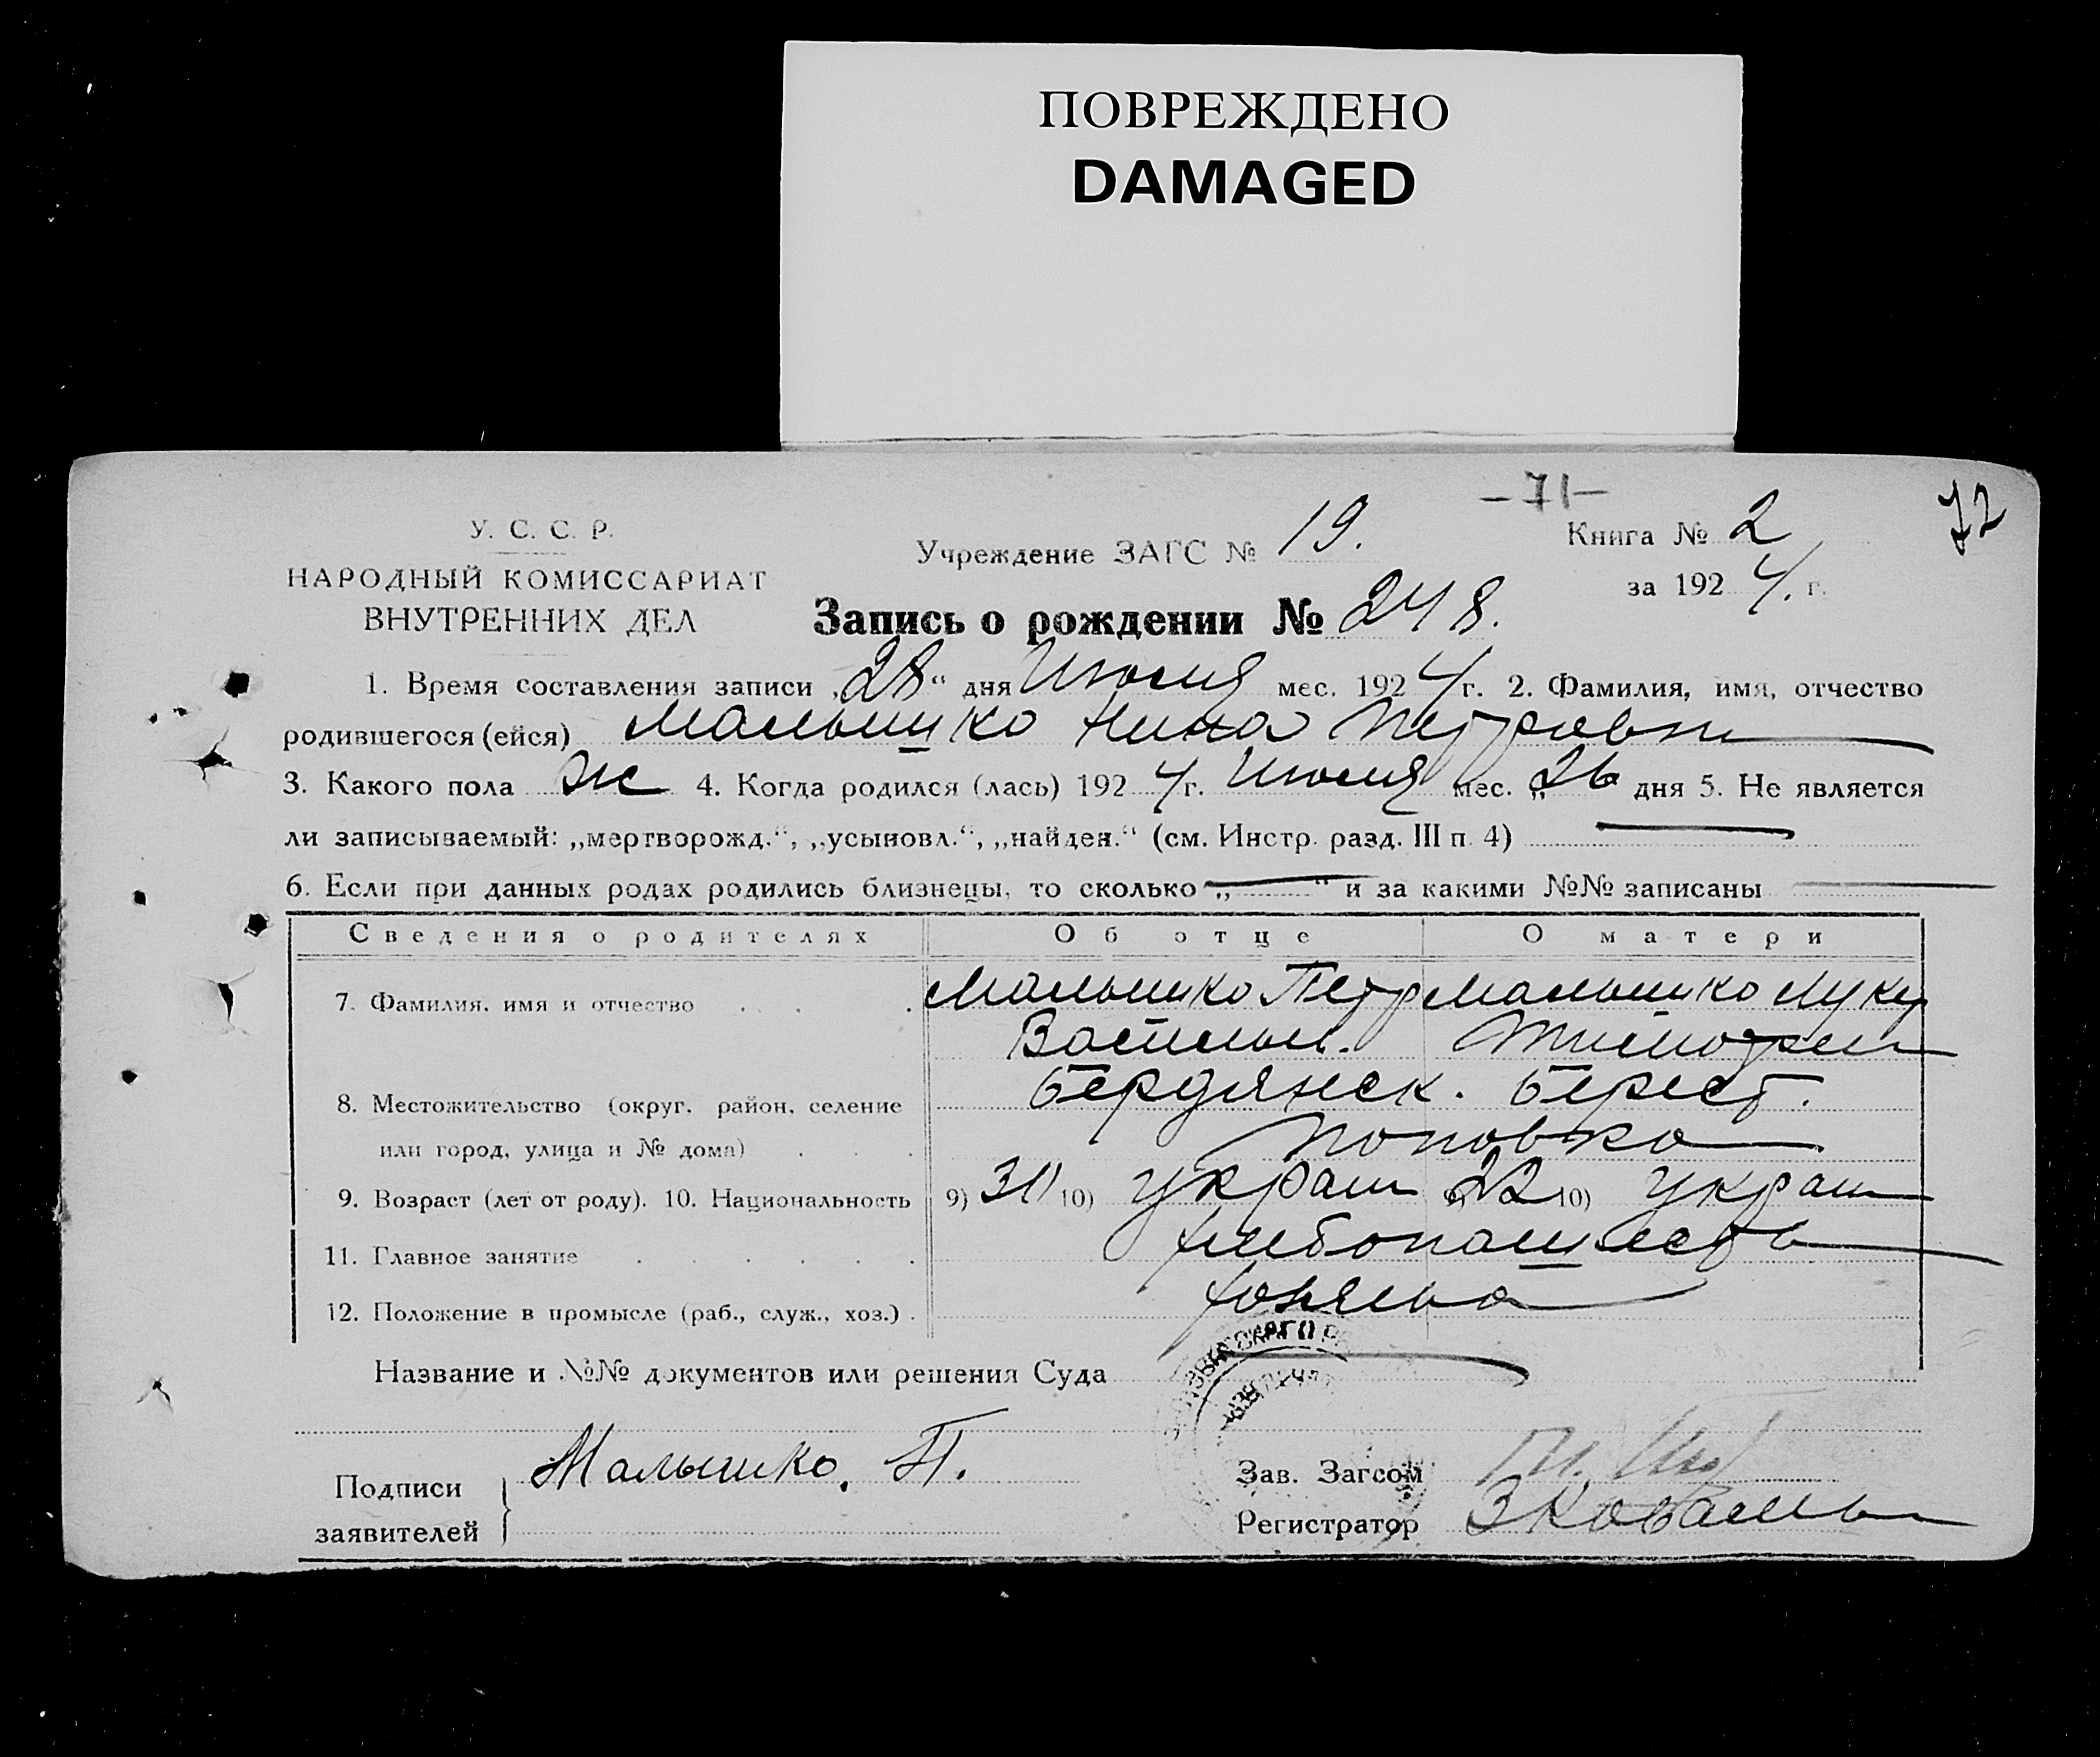 ПОВРЕЖДЕНО
DAMAGED
–71–
72
У. С. С. Р.
НАРОДНЫЙ КОМИССАРИАТ
ВНУТРЕННИХ ДЕЛ
Учреждение ЗАГС № 19.
Книга № 2
за 1924. г.
Запись о рождении № 248.
1. Время составления записи „28“ дня Июля мес. 1924 г. 2. Фамилия, имя, отчество
родившегося (ейся) Малышко Нина Петровн
3. Какого пола ж 4. Когда родился (лась) 1924 г. Июля мес. „26 дня 5. Не является
ли записываемый: „мертворожд.“, „усыновл.“, „найден.“ (см. Инстр. разд. III п. 4)
6. Если при данных родах родились близнецы, то сколько „ “ и за какими №№ записаны
Сведения о родителях Об отце О матери
7. Фамилия, имя и отчество Малышко Петр Малышко Лукер
Васильев. Тимофеи
8. Местожительство (округ, район, селение Бердянск. Берест.
или город, улица и № дома) Поповка
9. Возраст (лет от роду). 10. Национальность 9) 31 10) украин 9) 22 10) украин
11. Главное занятие хлебопашество
12. Положение в промысле (раб., служ., хоз.) хозяева
Название и №№ документов или решения Суда
Подписи
заявителей
Малышко. П.
Зав. Загсом
Регистратор